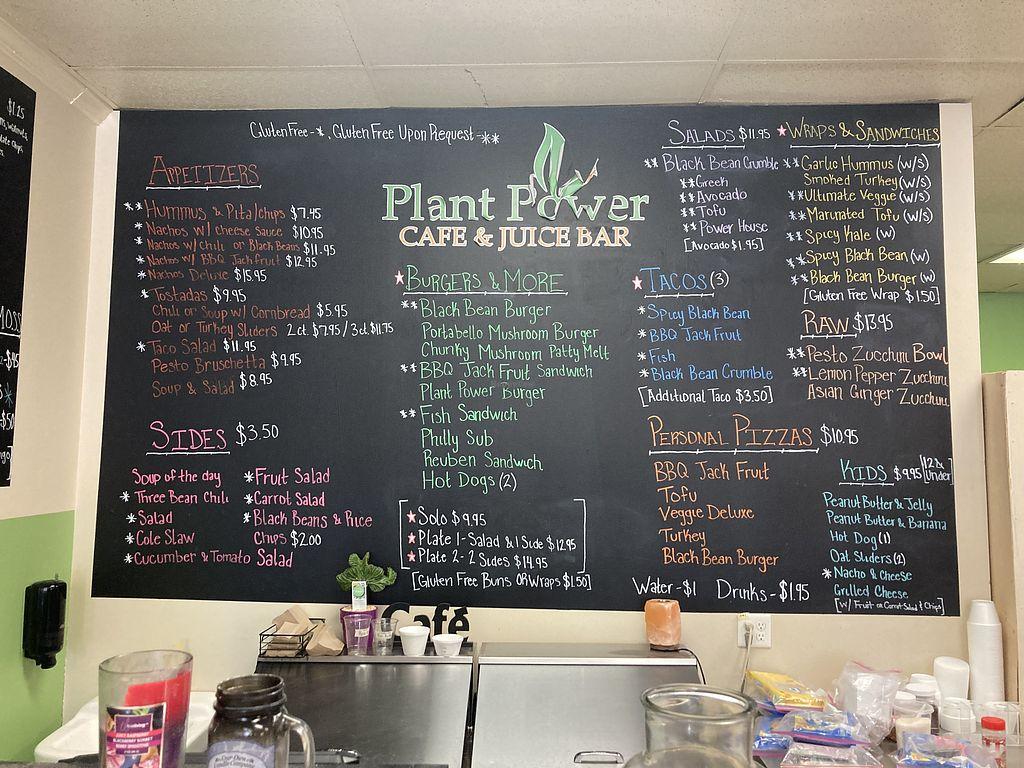 GlutenFree-*, GlutenFree Upon Request-**
Plant Power
CAFE & JUICE BAR
APPETIZERS
**Hummus & Pita/chips $7.45
*Nachos w/ cheese sauce $10.95
*Nachos w/ chili or Black Beans $11.95
*Nachos w/ BBQ Jackfruit $12.95
*Nachos Deluxe $15.95
*Tostadas $9.95
Chili or Soup w/ Cornbread $5.95
Oat or Turkey Sliders 2ct. $7.95/3ct. $11.75
*Taco Salad $11.95
Pesto Bruschetta $9.95
Soup & Salad $8.95
SIDES $3.50
Soup of the day
*Three Bean Chili
*Salad
*Cole Slaw
*Cucumber & Tomato Salad
*Fruit Salad
*Carrot Salad
*Black Beans & Rice
Chips $2.00
★BURGERS & MORE
**Black Bean Burger
Portabello Mushroom Burger
Chunky Mushroom Patty Melt
**BBQ Jack Fruit Sandwich
Plant Power Burger
**Fish Sandwich
Philly Sub
Reuben Sandwich
Hot Dogs (2)
★Solo $9.95
★Plate 1-Salad & 1 Side $12.95
★Plate 2-2 Sides $14.95
[Gluten Free Buns OR Wraps $1.50]
SALADS $11.95
**Black Bean Crumble
**Greek
**Avocado
**Tofu
**Power House
[Avocado $1.95]
★TACOS (3)
*Spicy Black Bean
*BBQ Jack Fruit
*Fish
*Black Bean Crumble
[Additional Taco $3.50]
PERSONAL PIZZAS $10.95
BBQ Jack Fruit
Tofu
Veggie Deluxe
Turkey
Black Bean Burger
Water-$1 Drinks-$1.95
★WRAPS & SANDWICHES
**Garlic Hummus (w/s)
Smoked Turkey (w/s)
**Ultimate Veggie (w/s)
**Marinated Tofu (w/s)
**Spicy Kale (w)
**Spicy Black Bean (w)
**Black Bean Burger (w)
[Gluten Free Wrap $1.50]
RAW $13.95
**Pesto Zucchini Bowl
**Lemon Pepper Zucchini
Asian Ginger Zucchini
KIDS $9.95 [12 & Under]
Peanut Butter & Jelly
Peanut Butter & Banana
Hot Dog (1)
Oat Sliders (2)
*Nacho & Cheese
Grilled Cheese
[w/ Fruit or Carrot Salad & Chips]
Café
$1.25